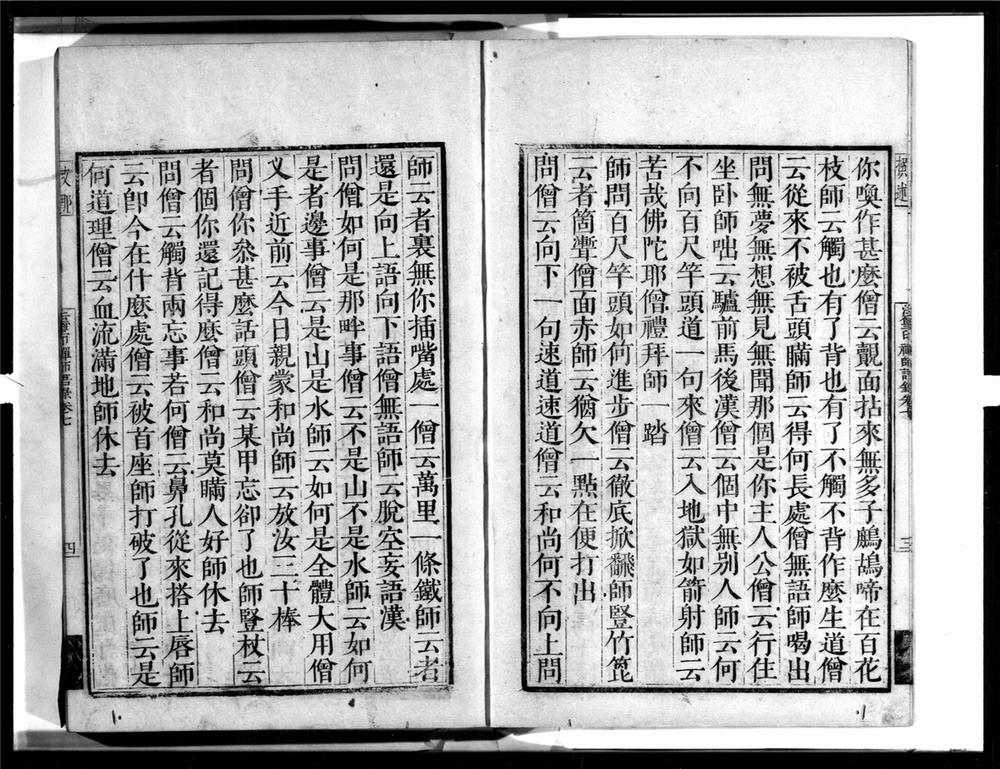 你喚作甚麼僧云覿面拈來無多子鷓鴣啼在百花
枝師云觸也有了背也有了不觸不背作麼生道僧
云從來不被舌頭瞞師云得何長處僧無語師喝出
問無夢無想無見無聞那個是你主人公僧云行住
坐卧師咄云驢前馬後漢僧云個中無别人師云何
不向百尺竿頭道一句來僧云入地獄如箭射師云
苦哉佛陀耶僧禮拜師一踏
師問百尺竿頭如何進步僧云徹底掀翻師豎竹篦
云者箇聻僧面赤師云猶欠一點在便打出
問僧云向下一句速道速道僧云和尚何不向上問
師云者裏無你插嘴處一僧云萬里一條鐵師云者
還是向上語向下語僧無語師云脫空妄語漢
問僧如何是那畔事僧云不是山不是水師云如何
是者邊事僧云是山是水師云如何是全體大用僧
乂手近前云今日親蒙和尚師云放汝三十棒
問僧你叅甚麼話頭僧云某甲忘卻了也師豎杖云
者個你還記得麼僧云和尚莫瞞人好師休去
問僧云觸背兩忘事若何僧云鼻孔從來搭上唇師
云卽今在什麼處僧云被首座師打破了也師云是
何道理僧云血流滿地師休去
四